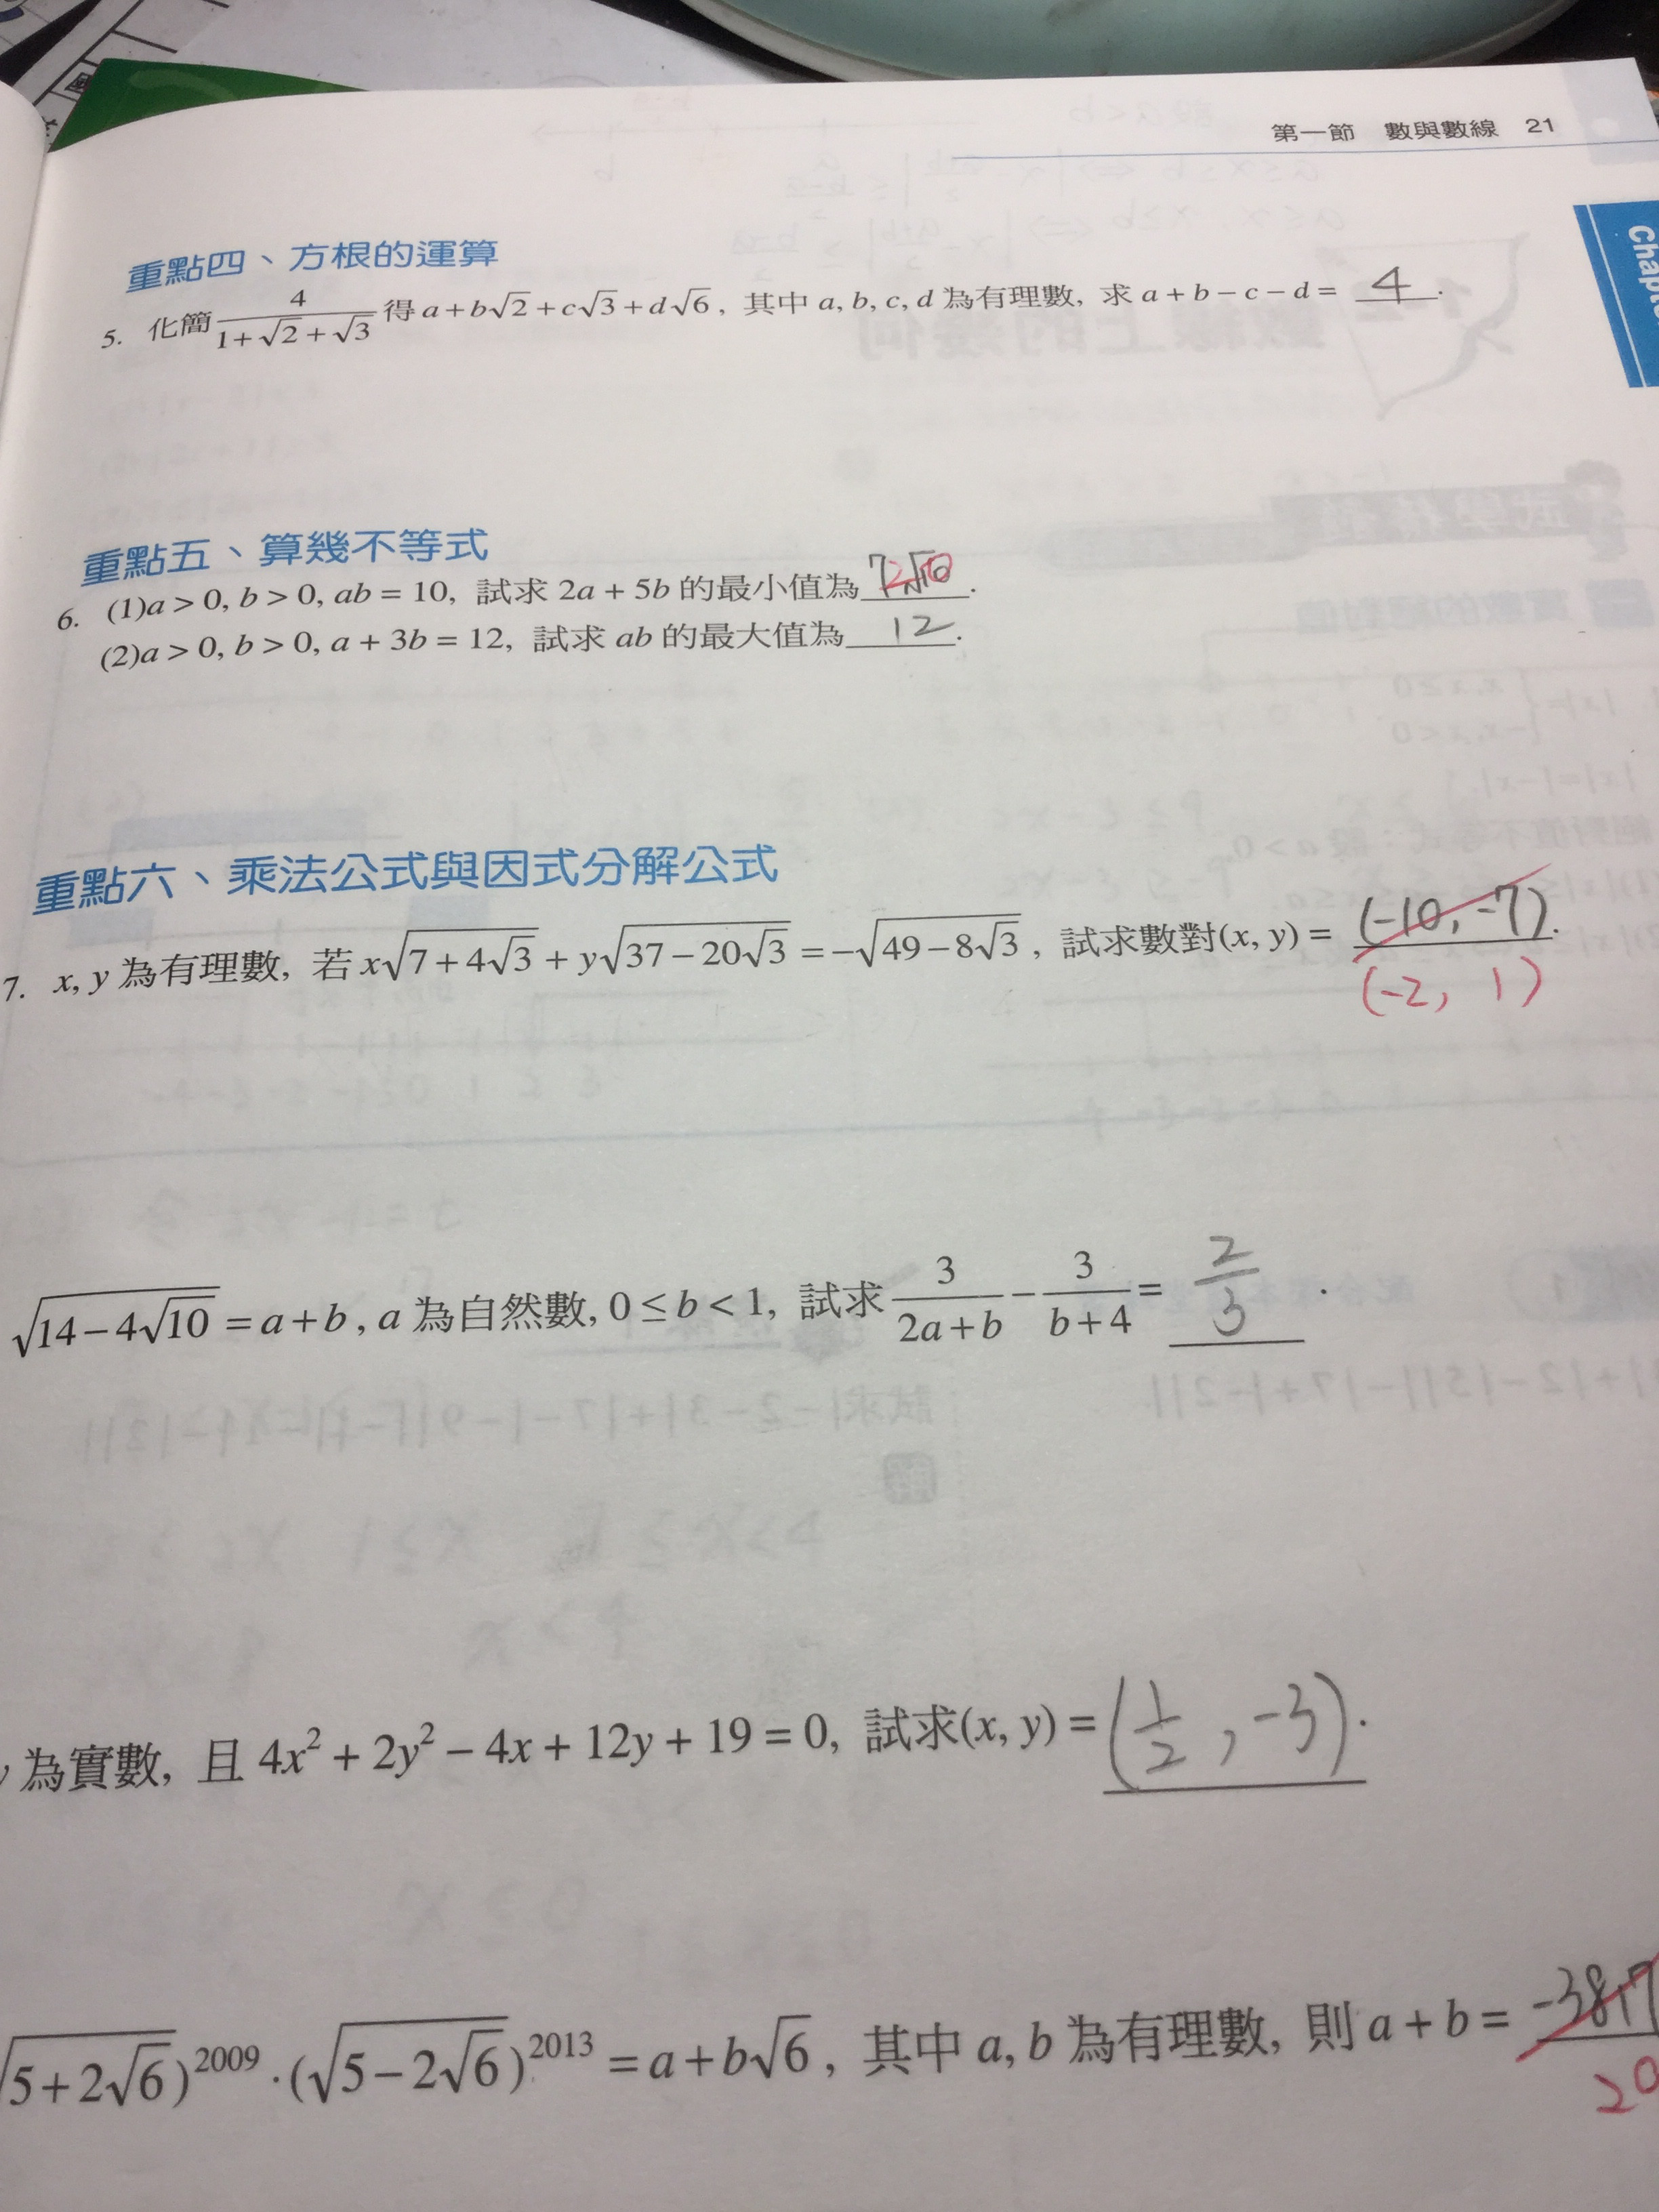 第一節 數與數線 21
Chapte
重點四、方根的運算
5. 化簡 4/(1+√2+√3) 得 a+b√2+c√3+d√6, 其中 a, b, c, d 為有理數, 求 a+b−c−d= 4 .
重點五、算幾不等式
6. (1)a > 0, b > 0, ab = 10, 試求 2a + 5b 的最小值為 .
(2)a > 0, b > 0, a + 3b = 12, 試求 ab 的最大值為 12 .
重點六、乘法公式與因式分解公式
7. x, y 為有理數, 若 x√(7+4√3) + y√(37−20√3) = −√(49−8√3) , 試求數對(x, y) = (-10, -7) .
(-2, 1)
√(14−4√10) = a+b , a 為自然數, 0≤b<1, 試求 3/(2a+b) − 3/(b+4) = 2/3 .
為實數, 且 4x² + 2y² − 4x + 12y + 19 = 0, 試求(x, y) = (1/2 , -3) .
√(5+2√6))²⁰⁰⁹ · (√(5−2√6))²⁰¹³ = a+b√6 , 其中 a, b 為有理數, 則 a + b = -3817
20